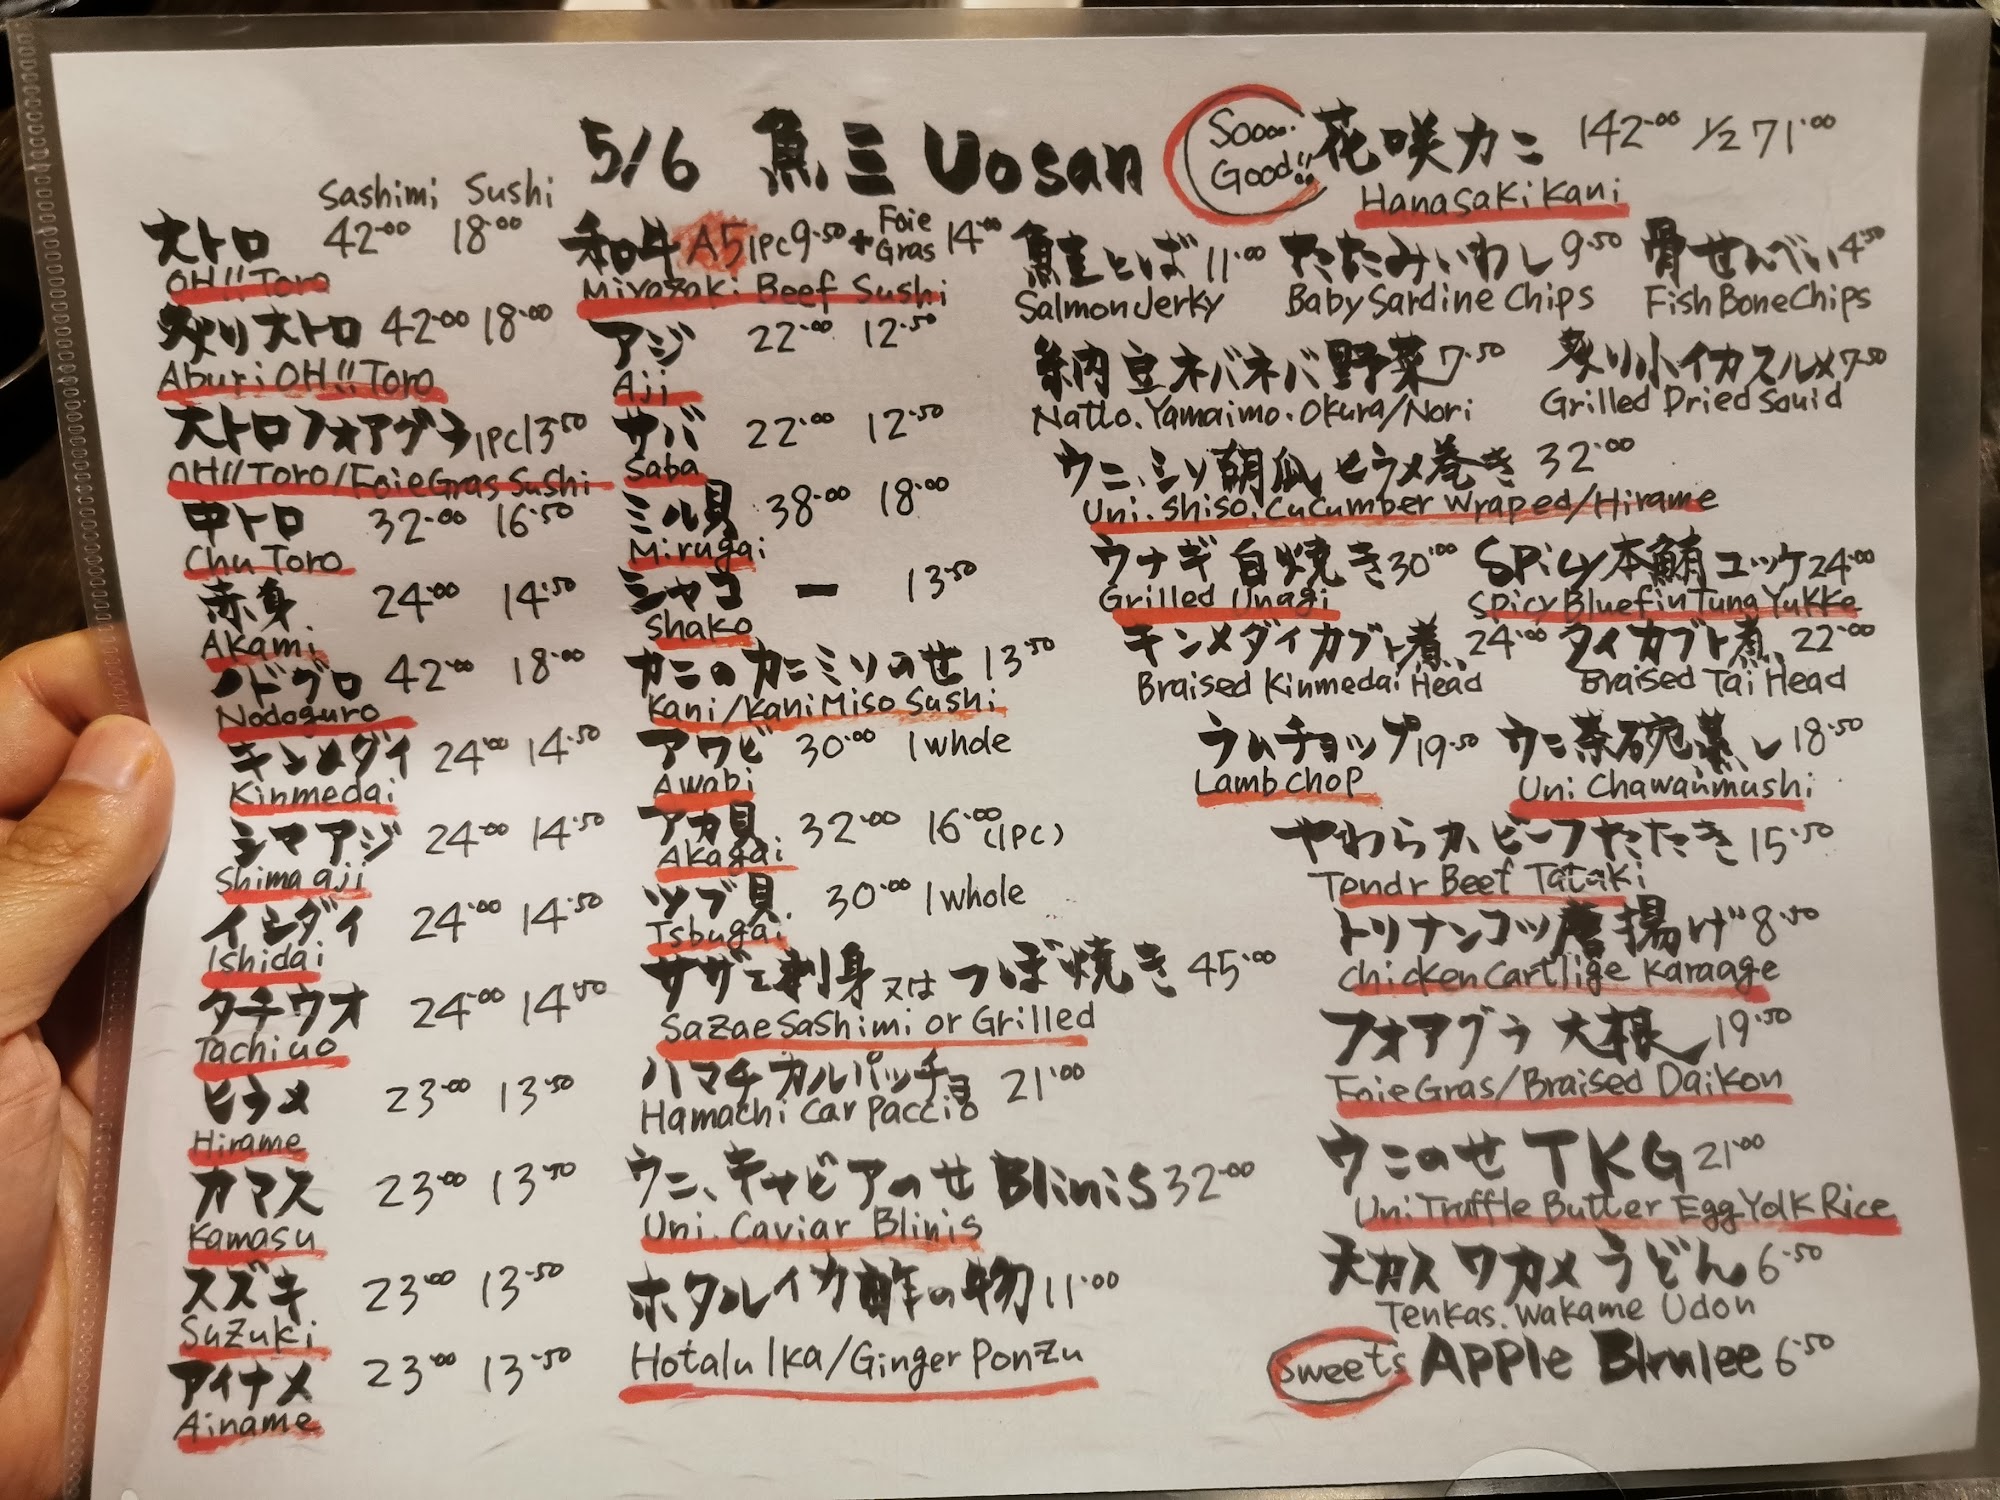 5/6 魚三 Uosan
Soooo.. Good!!
花咲カニ 142.00 1/2 71.00
Hanasaki Kani
Sashimi Sushi
大トロ 42.00 18.00
OH!! Toro
炙り大トロ 42.00 18.00
Aburi OH!! Toro
大トロフォアグラ 1PC 13.50
OH!! Toro/Foie Gras Sushi
中トロ 32.00 16.50
Chu Toro
赤身 24.00 14.50
Akami
ノドグロ 42.00 18.00
Nodoguro
キンメダイ 24.00 14.50
Kinmedai
シマアジ 24.00 14.50
Shima aji
イシダイ 24.00 14.50
Ishidai
タチウオ 24.00 14.50
Tachiuo
ヒラメ 23.00 13.50
Hirame
カマス 23.00 13.50
Kamasu
スズキ 23.00 13.50
Suzuki
アイナメ 23.00 13.50
Ainame
和牛 A5 1PC 9.50 + Foie Gras 14.00
Miyazaki Beef Sushi
アジ 22.00 12.50
Aji
サバ 22.00 12.50
Saba
ミル貝 38.00 18.00
Mirugai
シャコ ー 13.50
Shako
カニのカニミソのせ 13.50
Kani/Kani Miso Sushi
アワビ 30.00 1 whole
Awabi
アカ貝 32.00 16.00 (1PC)
Akagai
ツブ貝 30.00 1 whole
Tsbugai
サザエ刺身又はつぼ焼き 45.00
Sazae Sashimi or Grilled
ハマチカルパッチョ 21.00
Hamachi Carpaccio
ウニ、キャビアのせ Blinis 32.00
Uni. Caviar Blinis
ホタルイカ酢の物 11.00
Hotalu Ika/Ginger Ponzu
鮭とば 11.00 たたみいわし 9.50 骨せんべい 4.50
Salmon Jerky Baby Sardine Chips Fish Bone Chips
納豆ネバネバ野菜 7.50 炙り小イカスルメ 7.50
Natto. Yamaimo. Okura/Nori Grilled Dried Squid
ウニ、シソ胡瓜ヒラメ巻き 32.00
Uni. Shiso. Cucumber Wraped/Hirame
ウナギ白焼き 30.00 Spicy 本鮪ユッケ 24.00
Grilled Unagi Spicy Bluefin Tuna Yukke
キンメダイカブト煮 24.00 タイカブト煮 22.00
Braised Kinmedai Head Braised Tai Head
ラムチョップ 19.50 ウニ茶碗蒸し 18.50
Lamb chop Uni Chawanmushi
やわらか、ビーフたたき 15.50
Tendr Beef Tataki
トリナンコツ唐揚げ 8.50
Chicken Cartlige Karaage
フォアグラ大根 19.50
Foie Gras/Braised Daikon
ウニのせ TKG 21.00
Uni Truffle Butter Egg Yolk Rice
天カスワカメうどん 6.50
Tenkas. Wakame Udon
Sweets Apple Blrulee 6.50